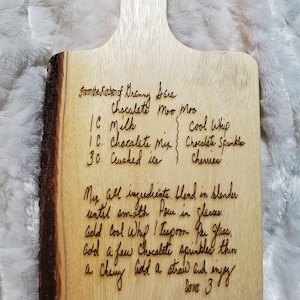 From the Kitchen of Granny Sara
Chocolate Moo Moo
1 C Milk } Cool Whip
1 C Chocolate Mix } Chocolate Sprinkles
3 C Crushed ice } Cherries
Mix all ingredients blend in blender
until smooth Pour in glasses
add Cool Whip 1 teaspoon Per glass,
add a few Chocolate sprinkles then
a Cherry add a straw and enjoy
3